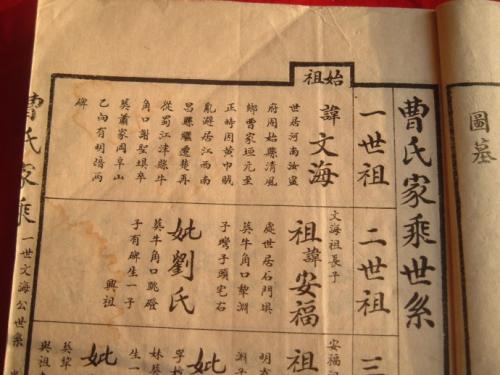 圖墓
曹氏家乘世系
始祖
一世祖
諱文海
世居河南汝寧
府固始縣清風
鄉曹家垣元至
正時因黃巾賊
亂避居江西南
昌縣繼遷楚再
從蜀江津縣牛
角口謝聖埧卒
葬蕭家岡阜山
乙向有明兩
碑
二世祖
文海祖長子
祖諱安福
處世居石門埧
葬牛角口犂淵
子灣子頭宅右
妣劉氏
葬牛角口跳磴
子有碑生一子
興祖
三
安福
祖
妣
生一
妣
曹氏家乘
一世文海公世系